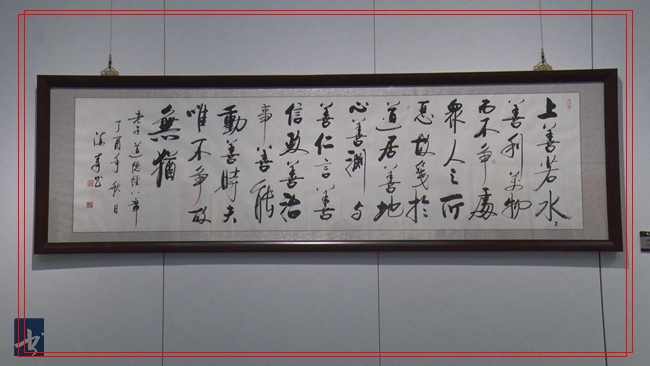 上善若水〻
善利萬物
而不争處
衆人之所
惡故幾於
道居善地
心善渊与
善仁言善
信政善治
事善能
動善時夫
唯不争故
無猶
老子道德经八章
丁酉年秋日
书